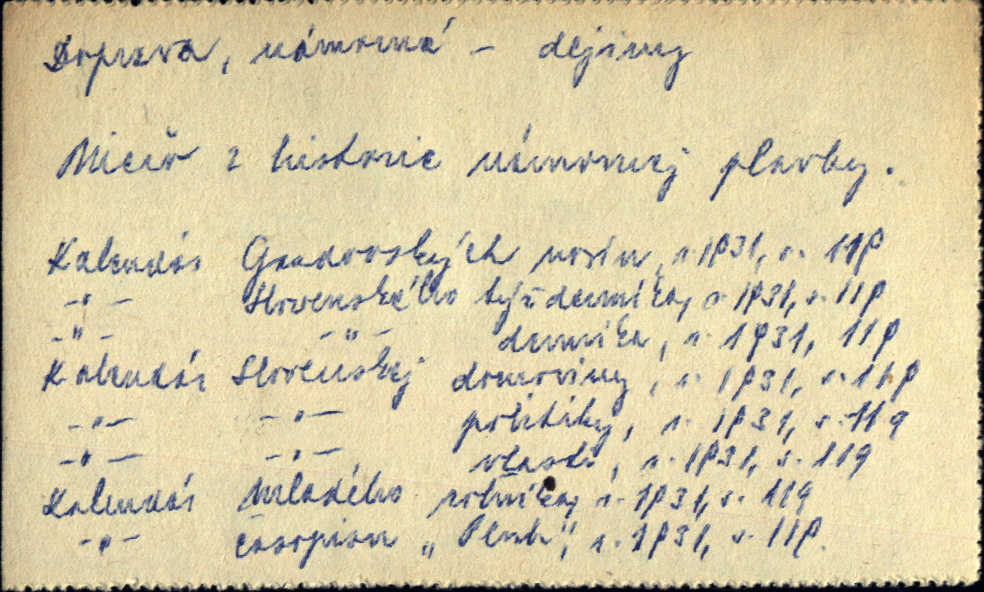 Doprava, námorná - dejiny
Niečo z historie námornej plavby.
Kalendár Gazdovských novín, r. 1931, s. 119
-"- Slovenského týždenníka, r. 1931, s. 119
-"- -"- denníka, r. 1931, 119
Kalendár Slovenskej domoviny, r. 1931, s. 119
-"- -"- politiky, r. 1931, s. 119
-"- -"- vlasti, r. 1931, s. 119
Kalendár Mladého roľníka, r. 1931, s. 119
-"- časopisu „Pluh", r. 1931, s. 119.